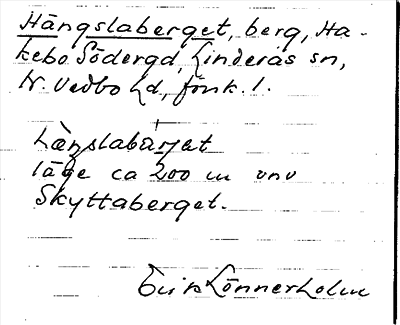 Hängslaberget, berg, Ha-
kebo Södergd, Linderås sn,
N. Vedbo hd, Jönk. l.
hàŋslabár̡jet
läge ca 200 m vnv
Skyttaberget.
Erik Lönnerholm